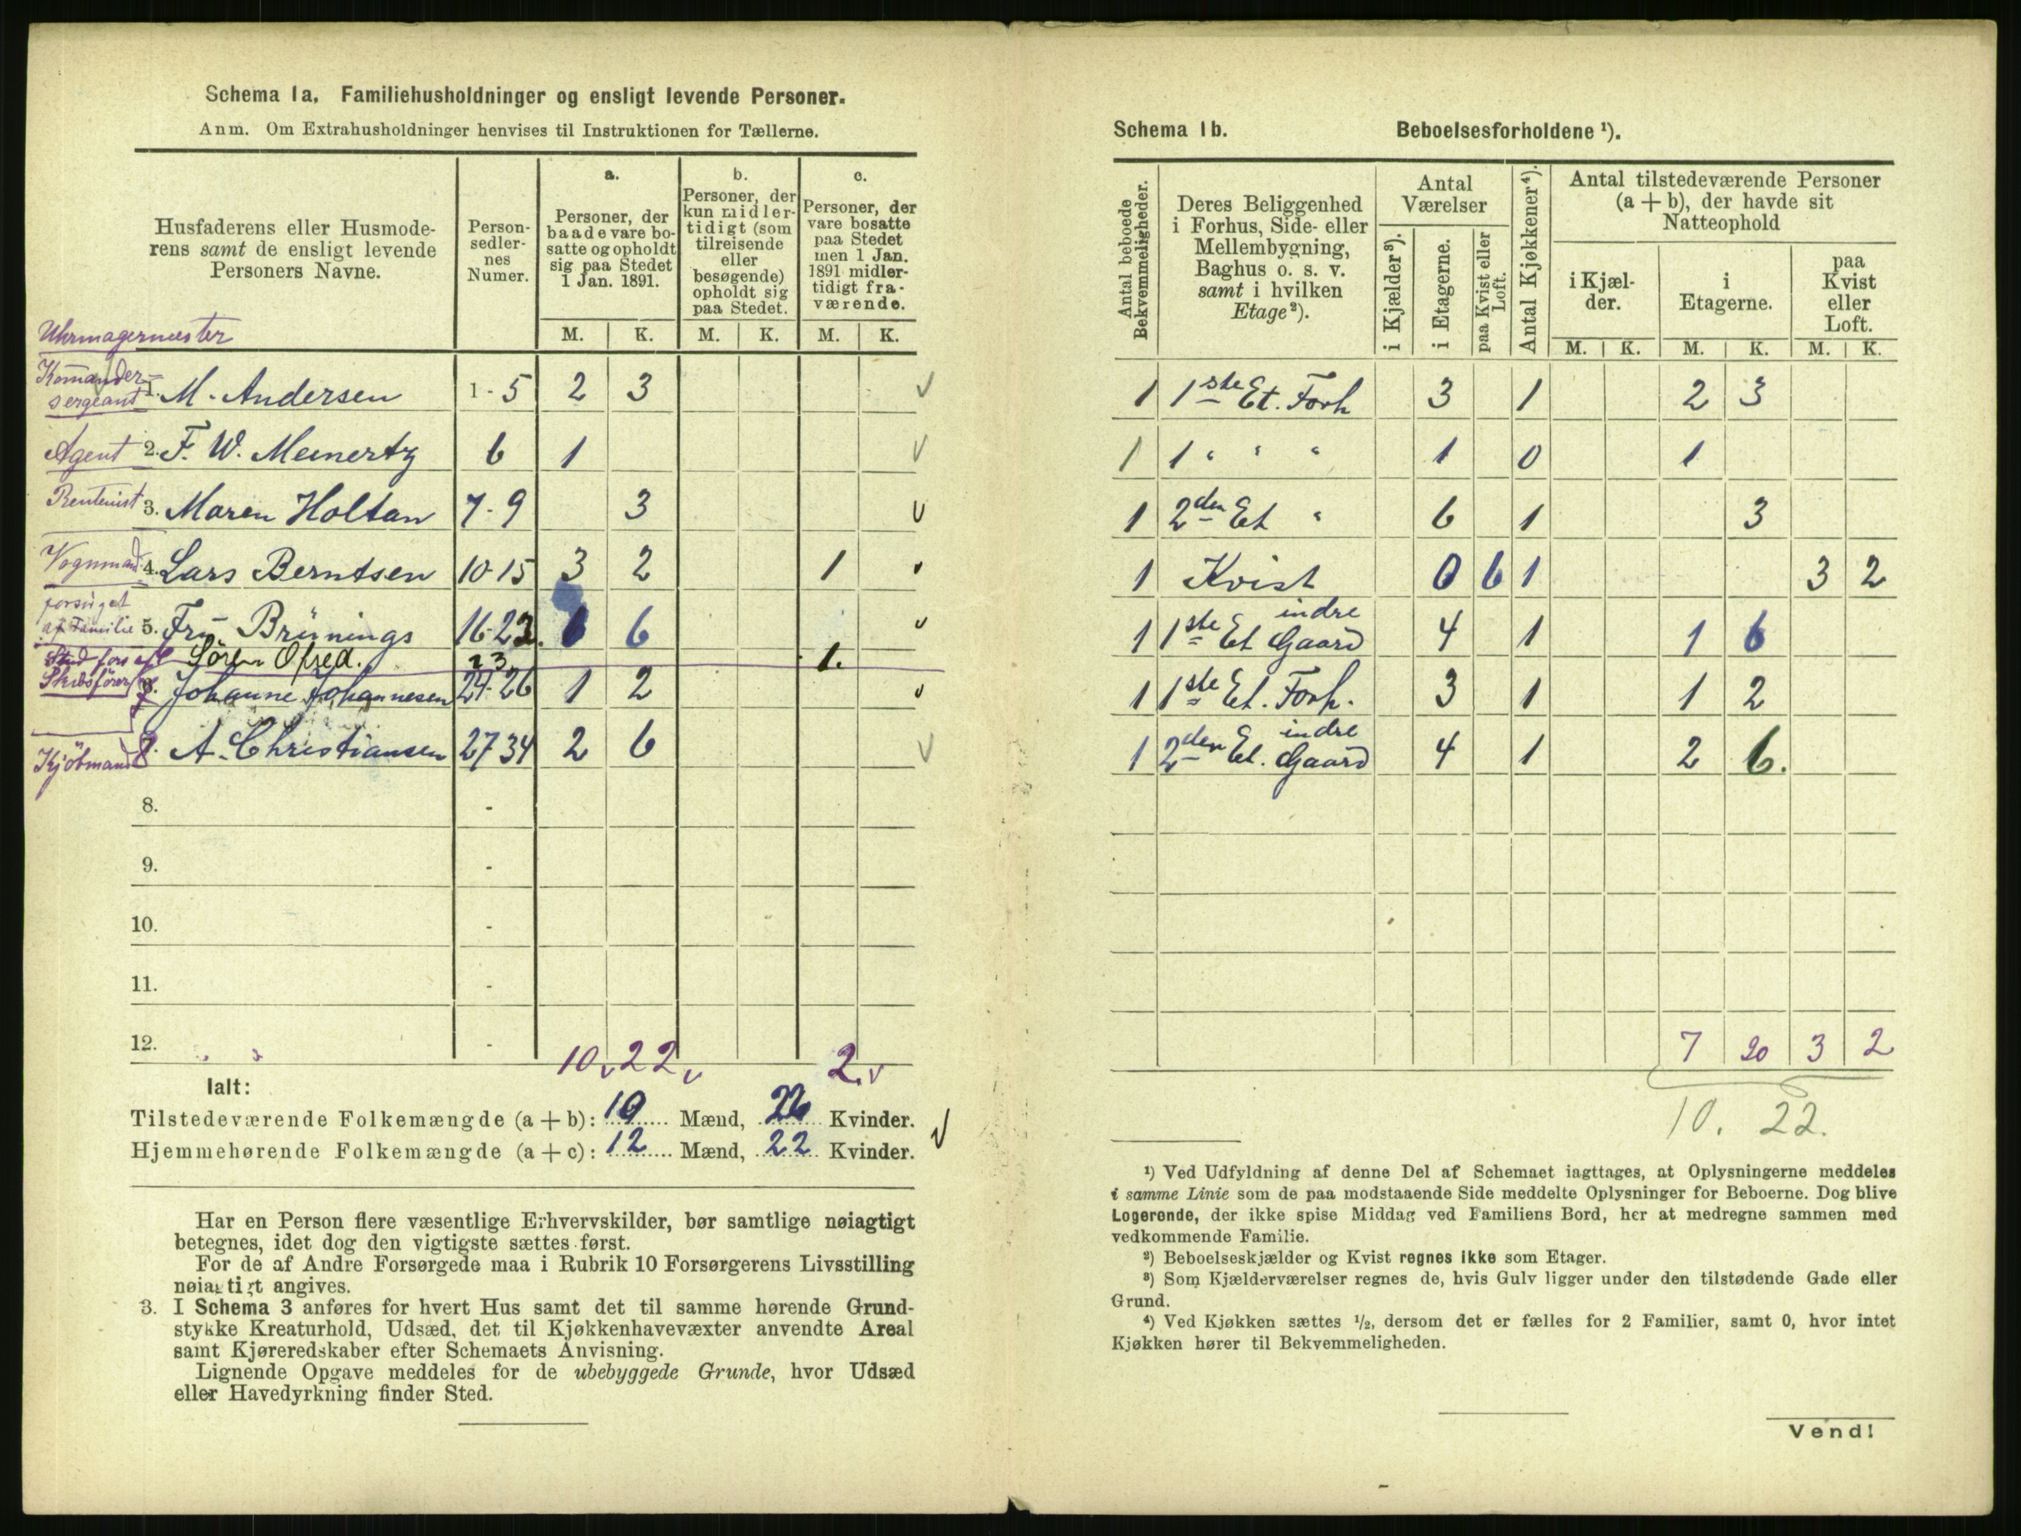 Schema 1a. Familiehusholdninger og ensligt levende Personer.
Anm. Om Extrahusholdninger henvises til Instruktionen for Tællerne.
Husfaderens eller Husmoderens samt de ensligt levende Personers Navne.
Personsedlernes Numer.
a. Personer, der baade vare bosatte og opholdt sig paa Stedet 1 Jan. 1891.
b. Personer, der kun midlertidigt (som tilreisende eller besøgende) opholdt sig paa Stedet.
c. Personer, der vare bosatte paa Stedet men 1 Jan. 1891 midlertidigt fraværende.
M. K. M. K. M. K.
Uhrmagermester
Kommandersergeant 1. M. Andersen 1-5 2 3 √
Agent 2. F. W. Meinertz 6 1 √
Rentenist 3. Maren Holtan 7-9 3 √
Vognmand 4. Lars Berntsen 10-15 3 2 1 √
forsörget af Familie 5. Fru Brünings 16-22. 6 √
Stud fors af F Sören Ofred. 23 1.
Skibsförer 6. Johanne Johannesen 24-26 1 2 √
Kjöbmand 7. A. Christiansen 27 34 2 6 √
8. -
9. -
10. -
11. -
12. -
10 √ 22 √ 2. √
Ialt:
Tilstedeværende Folkemængde (a + b): 10 Mænd, 22 Kvinder.
Hjemmehørende Folkemængde (a + c): 12 Mænd, 22 Kvinder. √
Har en Person flere væsentlige Erhvervskilder, bør samtlige nøiagtigt
betegnes, idet dog den vigtigste sættes først.
For de af Andre Forsørgede maa i Rubrik 10 Forsørgerens Livsstilling
nøiagtigt angives.
3. I Schema 3 anføres for hvert Hus samt det til samme hørende Grund-
stykke Kreaturhold, Udsæd, det til Kjøkkenhavevæxter anvendte Areal
samt Kjøreredskaber efter Schemaets Anvisning.
Lignende Opgave meddeles for de ubebyggede Grunde, hvor Udsæd
eller Havedyrkning finder Sted.
Schema 1b. Beboelsesforholdene ¹).
Antal beboede Bekvemmeligheder.
Deres Beliggenhed i Forhus, Side- eller Mellembygning, Baghus o. s. v. samt i hvilken Etage²).
Antal Værelser
i Kjælder³).
i Etagerne.
paa Kvist eller Loft.
Antal Kjøkkener⁴).
Antal tilstedeværende Personer (a + b), der havde sit Natteophold
i Kjælder.
i Etagerne.
paa Kvist eller Loft.
M. K. M. K. M. K.
1 1ste Et. Forh 3 1 2 3
1 1 " " " 1 0 1
1 2den Et " 6 1 3
1 Kvist 0 6 1 3 2
1 1ste Et indre Gaard 4 1 1 6
1 1ste Et. Forh. 3 1 1 2
1 2den Et. indre Gaard 4 1 2 6.
7 20 3 2
10. 22.
¹) Ved Udfyldning af denne Del af Schemaet iagttages, at Oplysningerne meddeles
i samme Linie som de paa modstaaende Side meddelte Oplysninger for Beboerne. Dog blive
Logerende, der ikke spise Middag ved Familiens Bord, her at medregne sammen med
vedkommende Familie.
²) Beboelseskjælder og Kvist regnes ikke som Etager.
³) Som Kjælderværelser regnes de, hvis Gulv ligger under den tilstødende Gade eller
Grund.
⁴) Ved Kjøkken sættes ½, dersom det er fælles for 2 Familier, samt 0, hvor intet
Kjøkken hører til Bekvemmeligheden.
Vend!